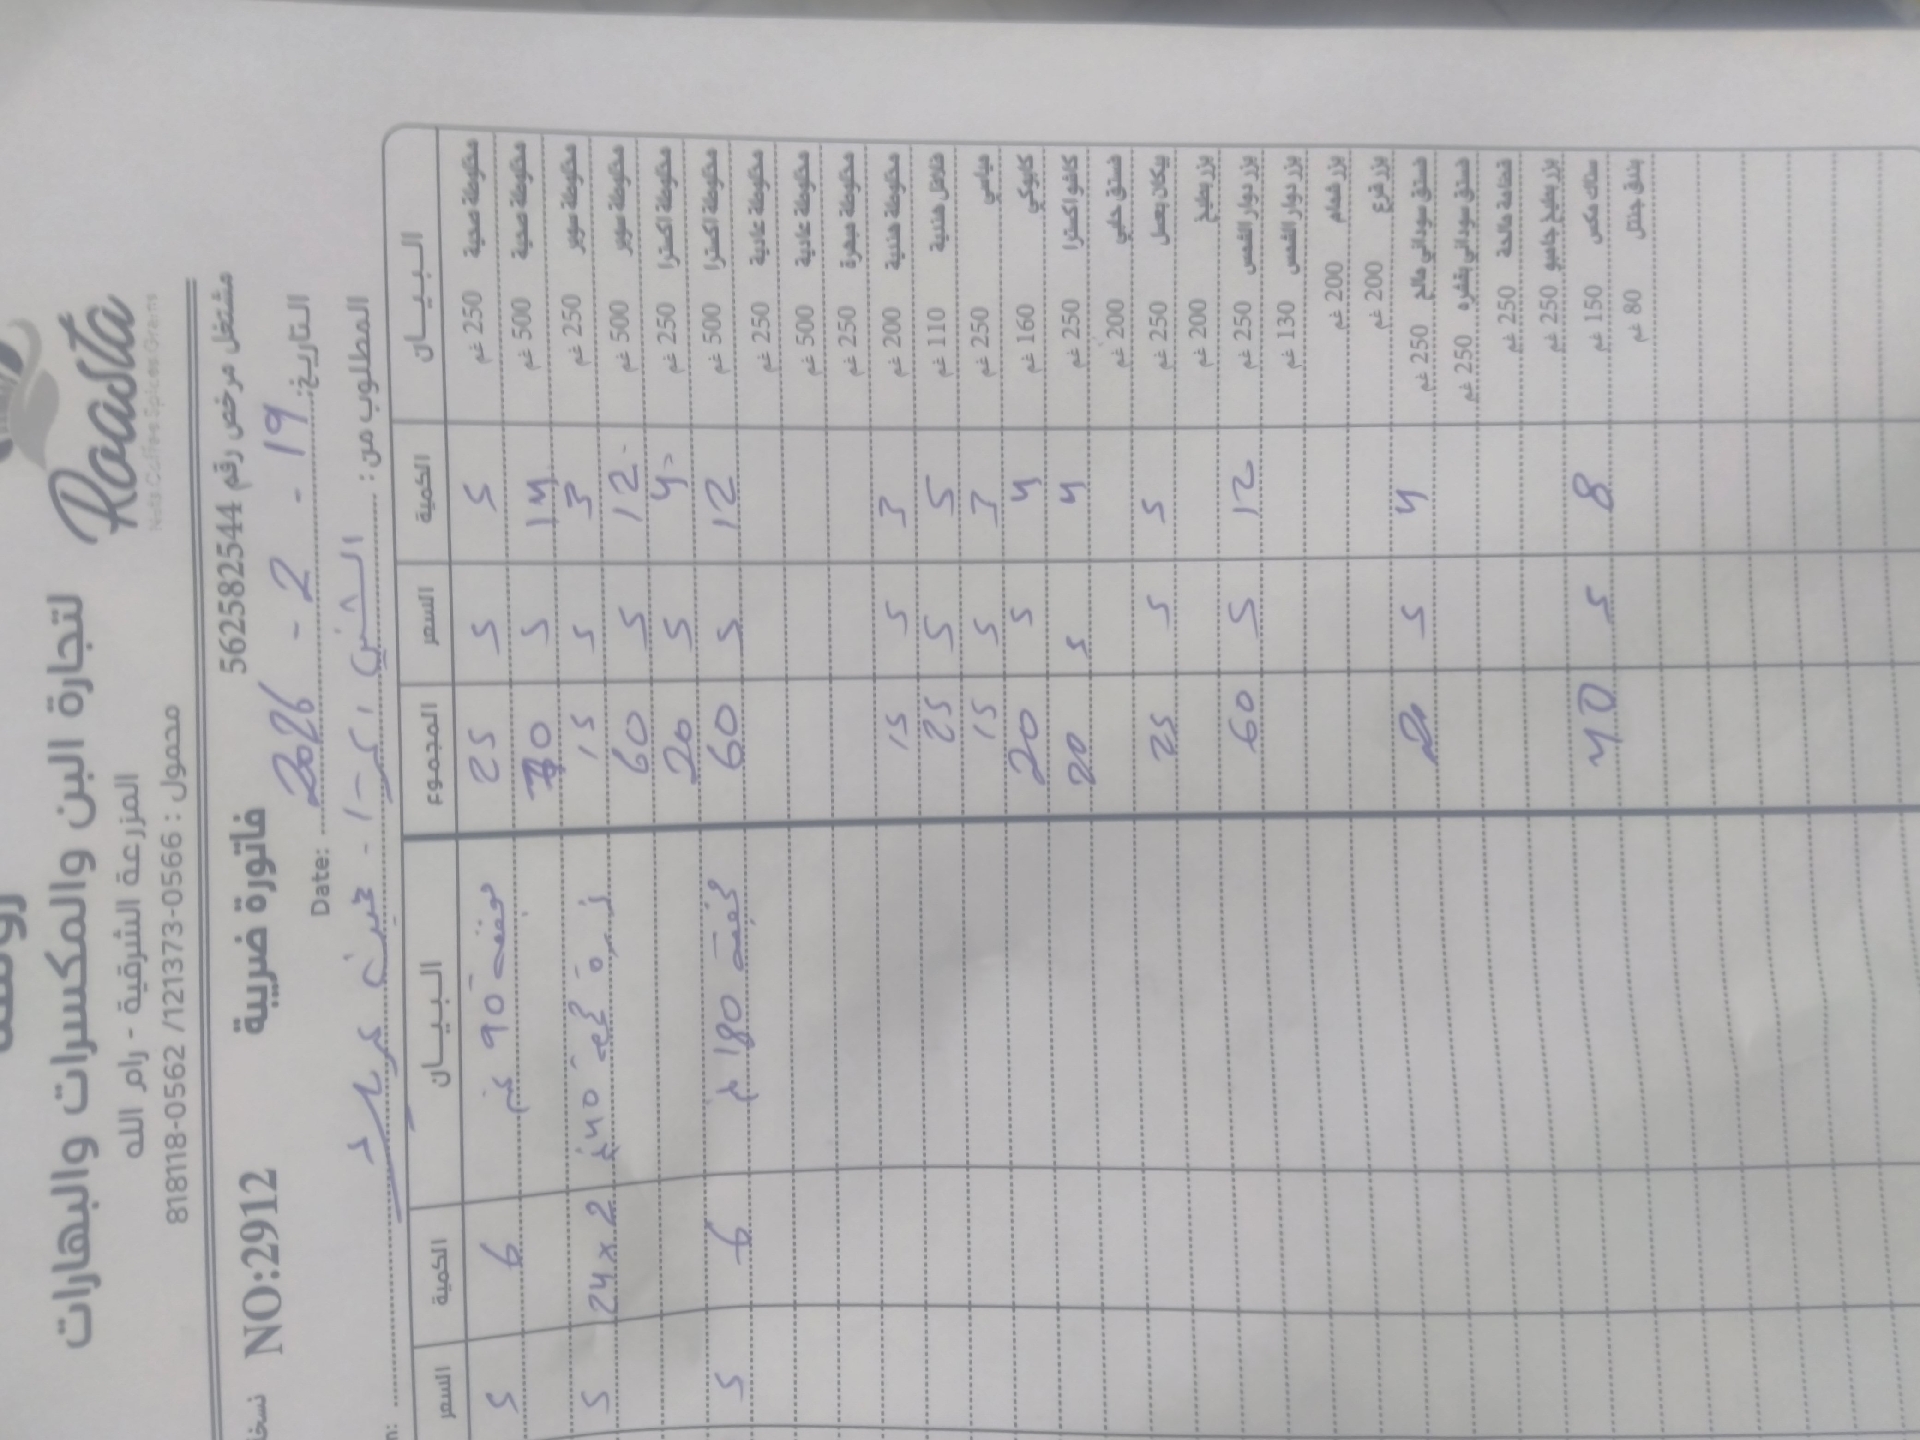 Roasta
Nuts.Coffee.Spices.Grains
لتجارة البن والمكسرات والبهارات
المزرعة الشرقية - رام الله
محمول : 0566-121373/ 0562-818118
مشتغل مرخص رقم 562582544
فاتورة ضريبية
NO:2912
التاريخ: 19 - 2 - 2026 Date:
المطلوب من:
البيـــان الكمية السعر المجموع
مخلوطة صحية 250 غم 5 5 25
مخلوطة صحية 500 غم 14 5 70
مخلوطة سوبر 250 غم 3 5 15
مخلوطة سوبر 500 غم 12 5 60
مخلوطة اكسترا 250 غم 4 5 20
مخلوطة اكسترا 500 غم 12 5 60
مخلوطة عادية 250 غم
مخلوطة عادية 500 غم
مخلوطة مبهرة 250 غم
مخلوطة هندية 200 غم 3 5 15
فلافل هندية 110 غم 5 5 25
ميامي 250 غم 3 5 15
كابوكي 160 غم 4 5 20
كاشو اكسترا 250 غم 4 5 20
فستق حلبي 200 غم
بيكان بعسل 250 غم 5 5 25
بزر بطيخ 200 غم
بزر دوار الشمس 250 غم 12 5 60
بزر دوار الشمس 130 غم
بزر شمام 200 غم
بزر قرع 200 غم
فستق سوداني مالح 250 غم 4 5 20
فستق سوداني بقشره 250 غم
قضامة مالحة 250 غم
بزر بطيخ جامبو 250 غم
سناك مكس 150 غم 8 5 40
بندق جنتل 80 غم
البيـــان الكمية السعر
90 غم 6 5
40 غ 24x2 5
180 غ 6 5